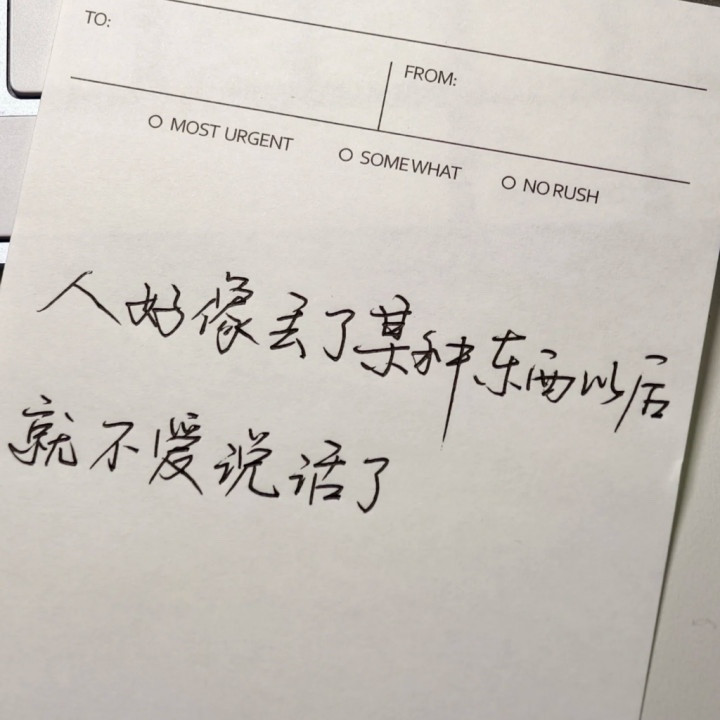 TO:
FROM:
MOST URGENT
SOMEWHAT
NO RUSH
人好像丢了某种东西以后
就不爱说话了